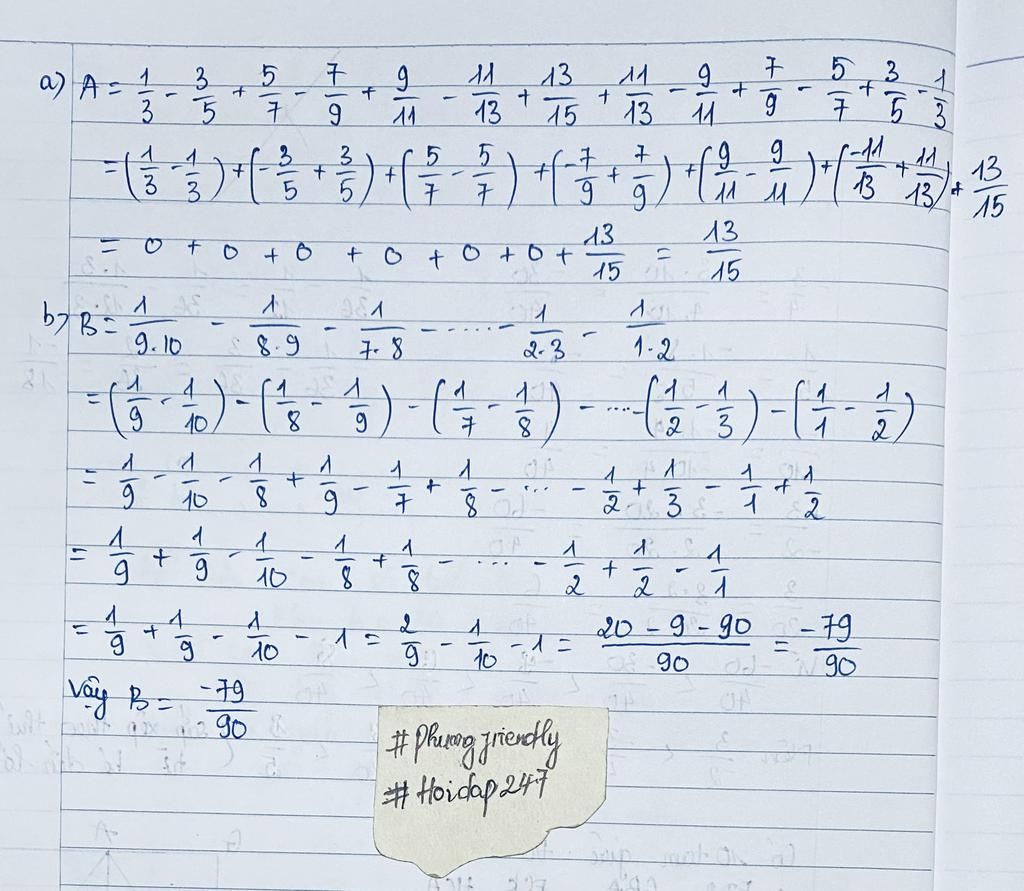 a) A = 1/3 - 3/5 + 5/7 - 7/9 + 9/11 - 11/13 + 13/15 + 11/13 - 9/11 + 7/9 - 5/7 + 3/5 - 1/3
= (1/3 - 1/3) + (-3/5 + 3/5) + (5/7 - 5/7) + (-7/9 + 7/9) + (9/11 - 9/11) + (-11/13 + 11/13) + 13/15
= 0 + 0 + 0 + 0 + 0 + 0 + 13/15 = 13/15
b) B = 1/9.10 - 1/8.9 - 1/7.8 - ..... - 1/2.3 - 1/1.2
= (1/9 - 1/10) - (1/8 - 1/9) - (1/7 - 1/8) - ....- (1/2 - 1/3) - (1/1 - 1/2)
= 1/9 - 1/10 - 1/8 + 1/9 - 1/7 + 1/8 - ... - 1/2 + 1/3 - 1/1 + 1/2
= 1/9 + 1/9 - 1/10 - 1/8 + 1/8 - ... - 1/2 + 1/2 - 1/1
= 1/9 + 1/9 - 1/10 - 1 = 2/9 - 1/10 - 1 = 20 - 9 - 90/90 = -79/90
Vậy B = -79/90
# Phuongfriendly
# Hoidap247